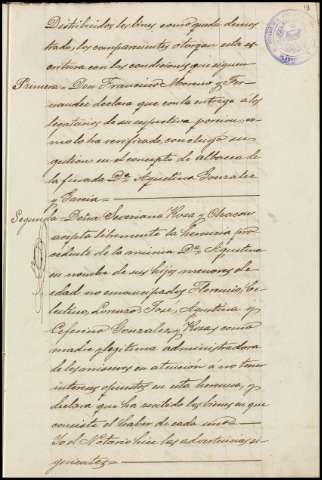 Distribuidos los bienes como queda demos
trado, los comparecientes otorgan esta es
critura con las condiciones que siguen
Primera = Don Francisco Moreno y Fer
nandez declara que con la entrega a los
legatarios de su respectiva porcion, co
mo lo ha verificado, concluye su
gestion en el concepto de albacea de
la finada Dª Agustina Gonzalez
y Garcia
Segunda = Doña Severiana Rosa y Chacon
acepta libremente la herencia pro
cedente de la misma Dª Agustina
en nombre de sus hijos menores de
edad no emancipados Florencio, Ce
lestino, Lorenzo, José, Agustina y
Ceferino Gonzalez y Rosas como
madre y legitima administradora
de los mismos en atencion a no tener
intereses opuestos en esta herencia, y
declara que ha recibido los bienes en que
consiste el haber de cada uno
Yo el Notario hice las advertencias si
guientes